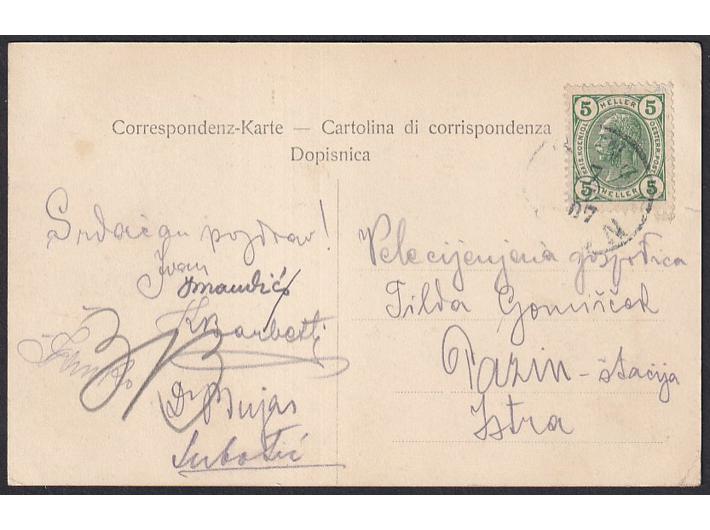 Correspondenz-Karte — Cartolina di corrispondenza
Dopisnica
5 HELLER 5
5 HELLER 5
07
Srdačan pozdrav!
Ivan
Mandić
K Barbetti
Dr Bujas
Subotić
Velecijenjena gospojica
Tilda Gomišček
Pazin - štacija
Istra